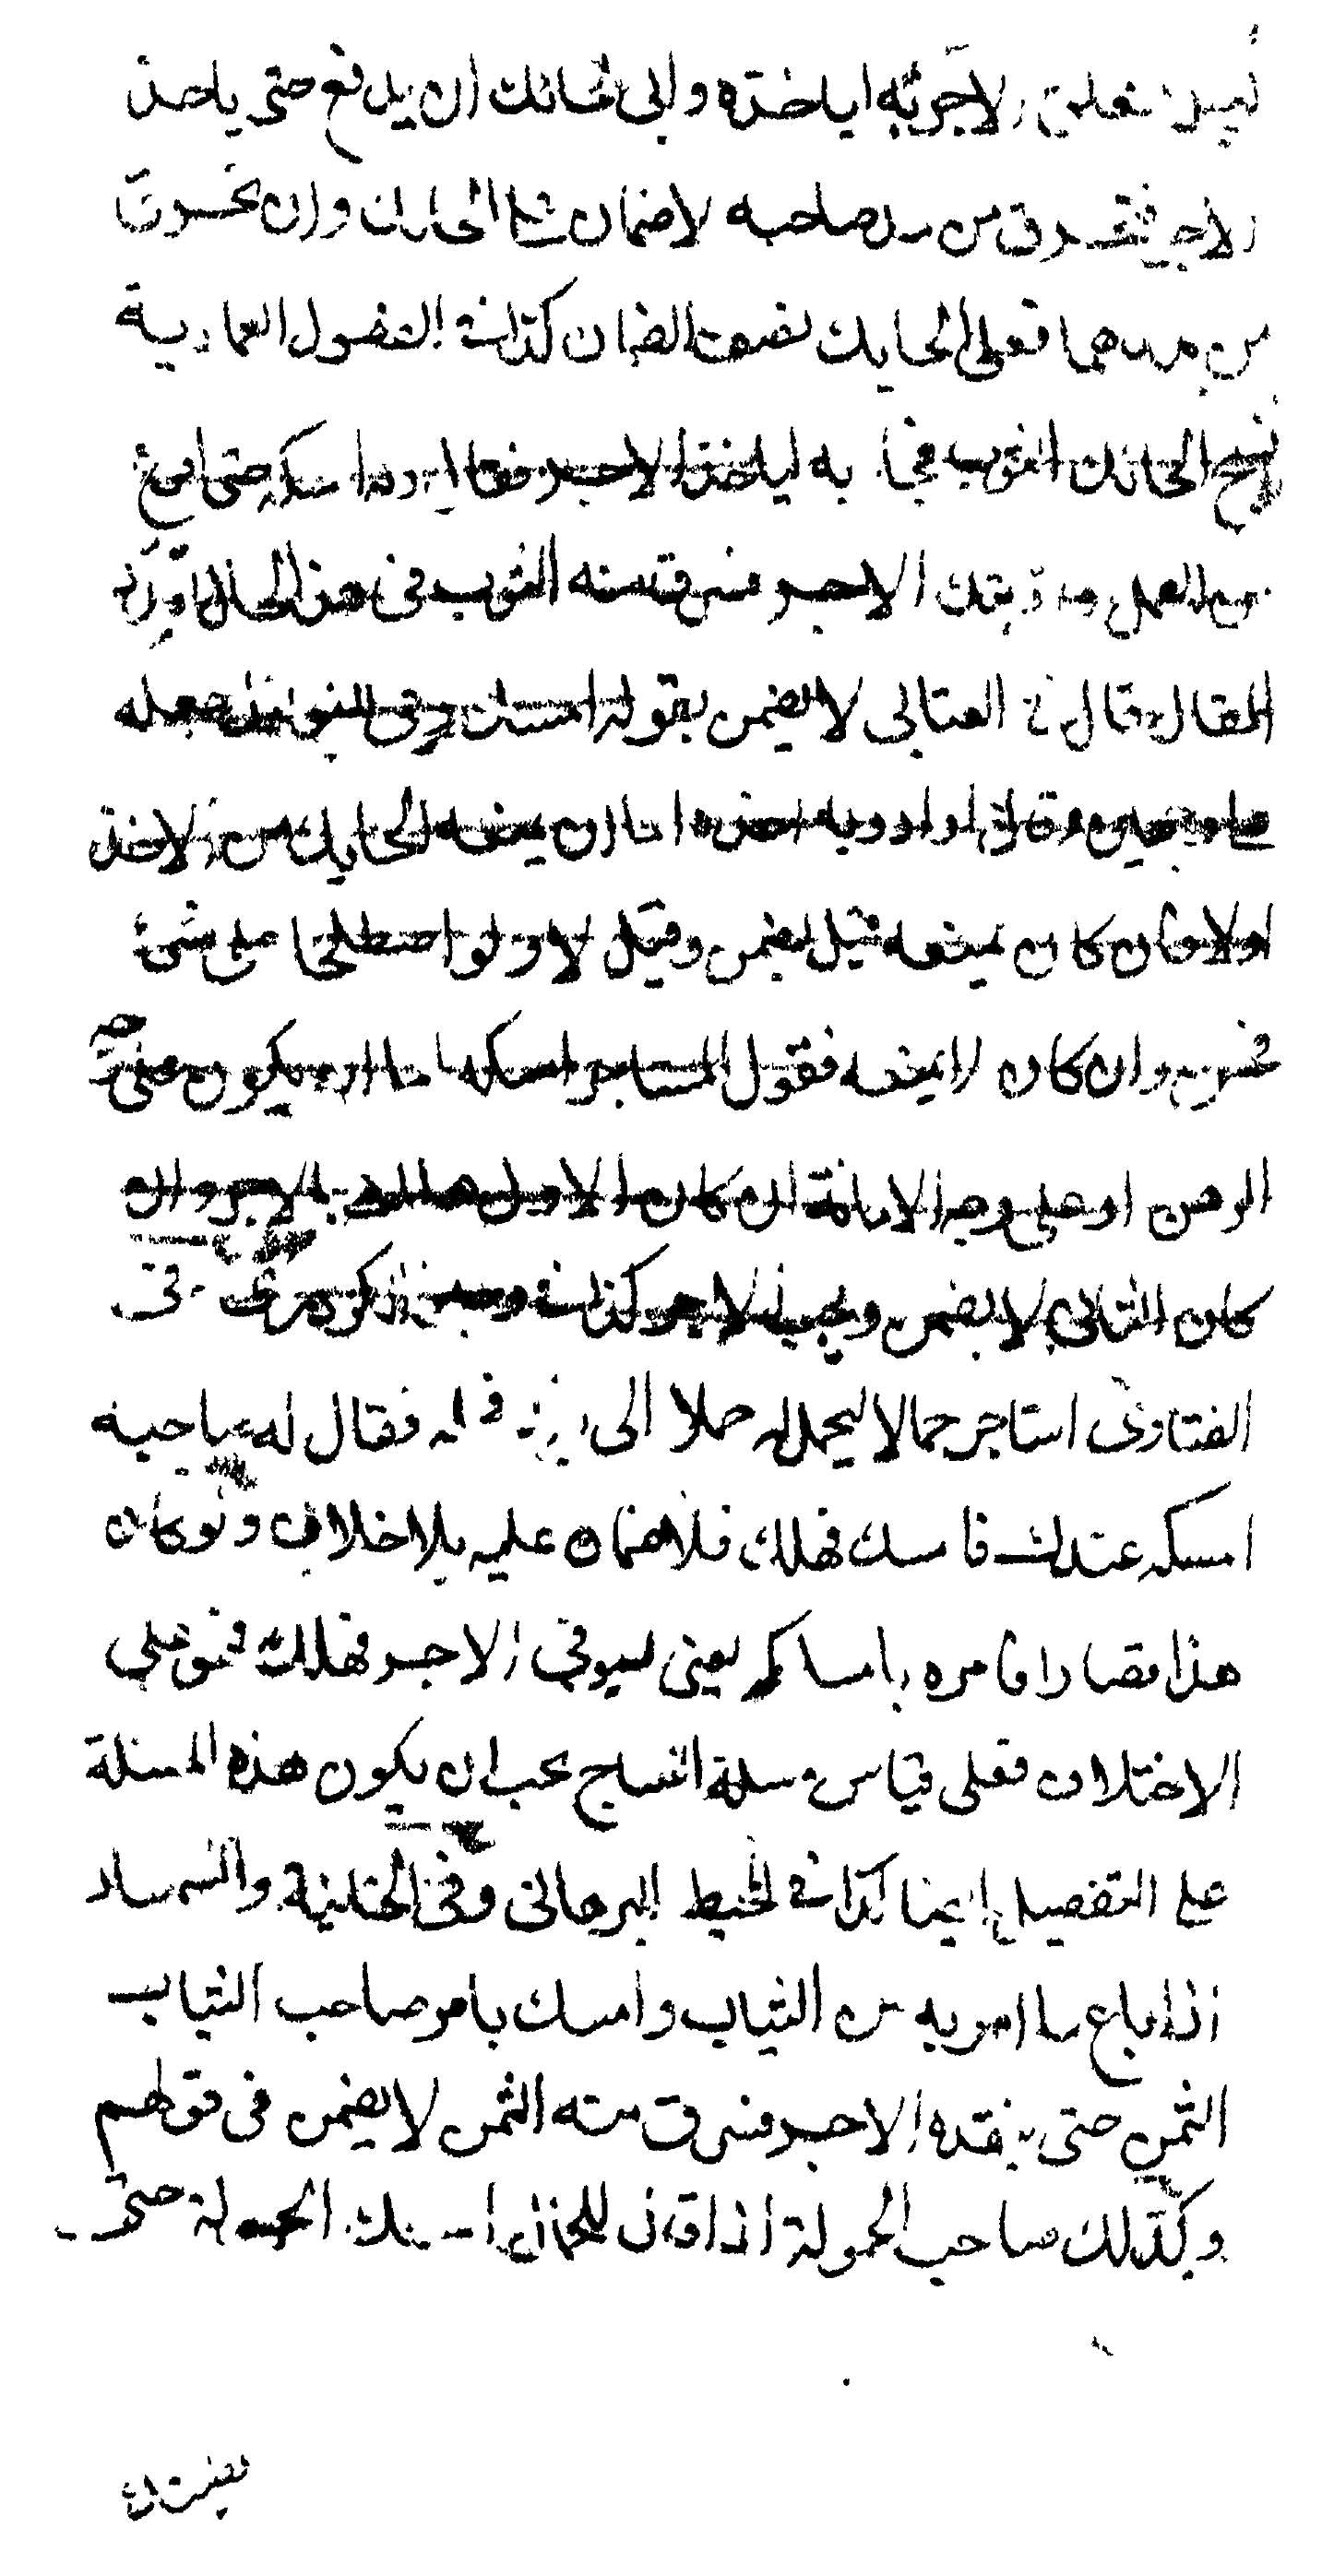 الاجر به لياخذه وابى الحائك ان يدفع حتى ياخذ
الاجر فتخرق من يد صاحبه لا ضمان على الحايك وان تخرق
من يدهما فعلى الحايك نصف الضمان كذا في الفصول العمادية
نسج الحائك الثوب فجاء به لياخذ الاجر فقال امسكه حتى افرغ
من العمل الاجر فسرق منه الثوب في هذا
المقال قال العتابى لا يضمن بقوله امسك وفى النوازل جعله
على وجهين وقال لو اراد ربه اخذه اما ان يمنعه الحايك من الاخذ
اولا فان كان يمنعه قيل يضمن وقيل لا ولو اصطلحا على شئ
وان كان لا يمنعه فقول المستاجر امسكه اما ان يكون على وجه
الرهن او على وجه الامانة ان كان الاول هلك بالاجر وان
كان الثانى لا يضمن ويجب الاجر كذا في وجيز الكردرى وفى
الفتاوى استاجر حمالا ليحمل له حملا الى فقال له صاحبه
امسكه عندك فامسك فهلك فلا ضمان عليه بلا خلاف ولو كان
هذا قصارا فامره بامساكه يعنى ليوفى الاجر فهلك فهو على
الاختلاف فعلى قياس مسئلة النساج يجب ان يكون هذه المسئلة
على التفصيل ايضا كذا في المحيط البرهانى وفى الخانية والسمسار
اذا باع ما امر به من الثياب وامسك بامر صاحب الثياب
الثمن حتى ينقده الاجر فسرق منه الثمن لا يضمن فى قولهم
وكذلك صاحب الحمولة اذا قال للحمال امسك الحمولة حتى